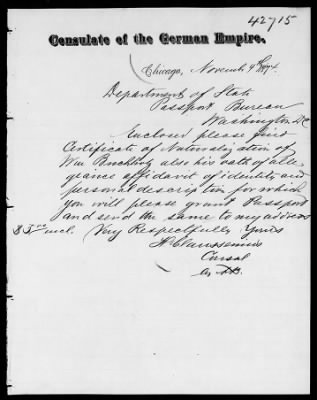 42715
Consulate of the German Empire.
Chicago, Novemb. 9th 1874.
Department of State
Passport Bureau
Washington DC
Enclosed please find
Certificate of Naturalization of
Wm also his oath of alle-
geance affidavit of identity and
personal description for which
you will please grant Passport
and send the same to my address
$5 00 incl. Very Respectfully Yours
H Claussenius
Consul